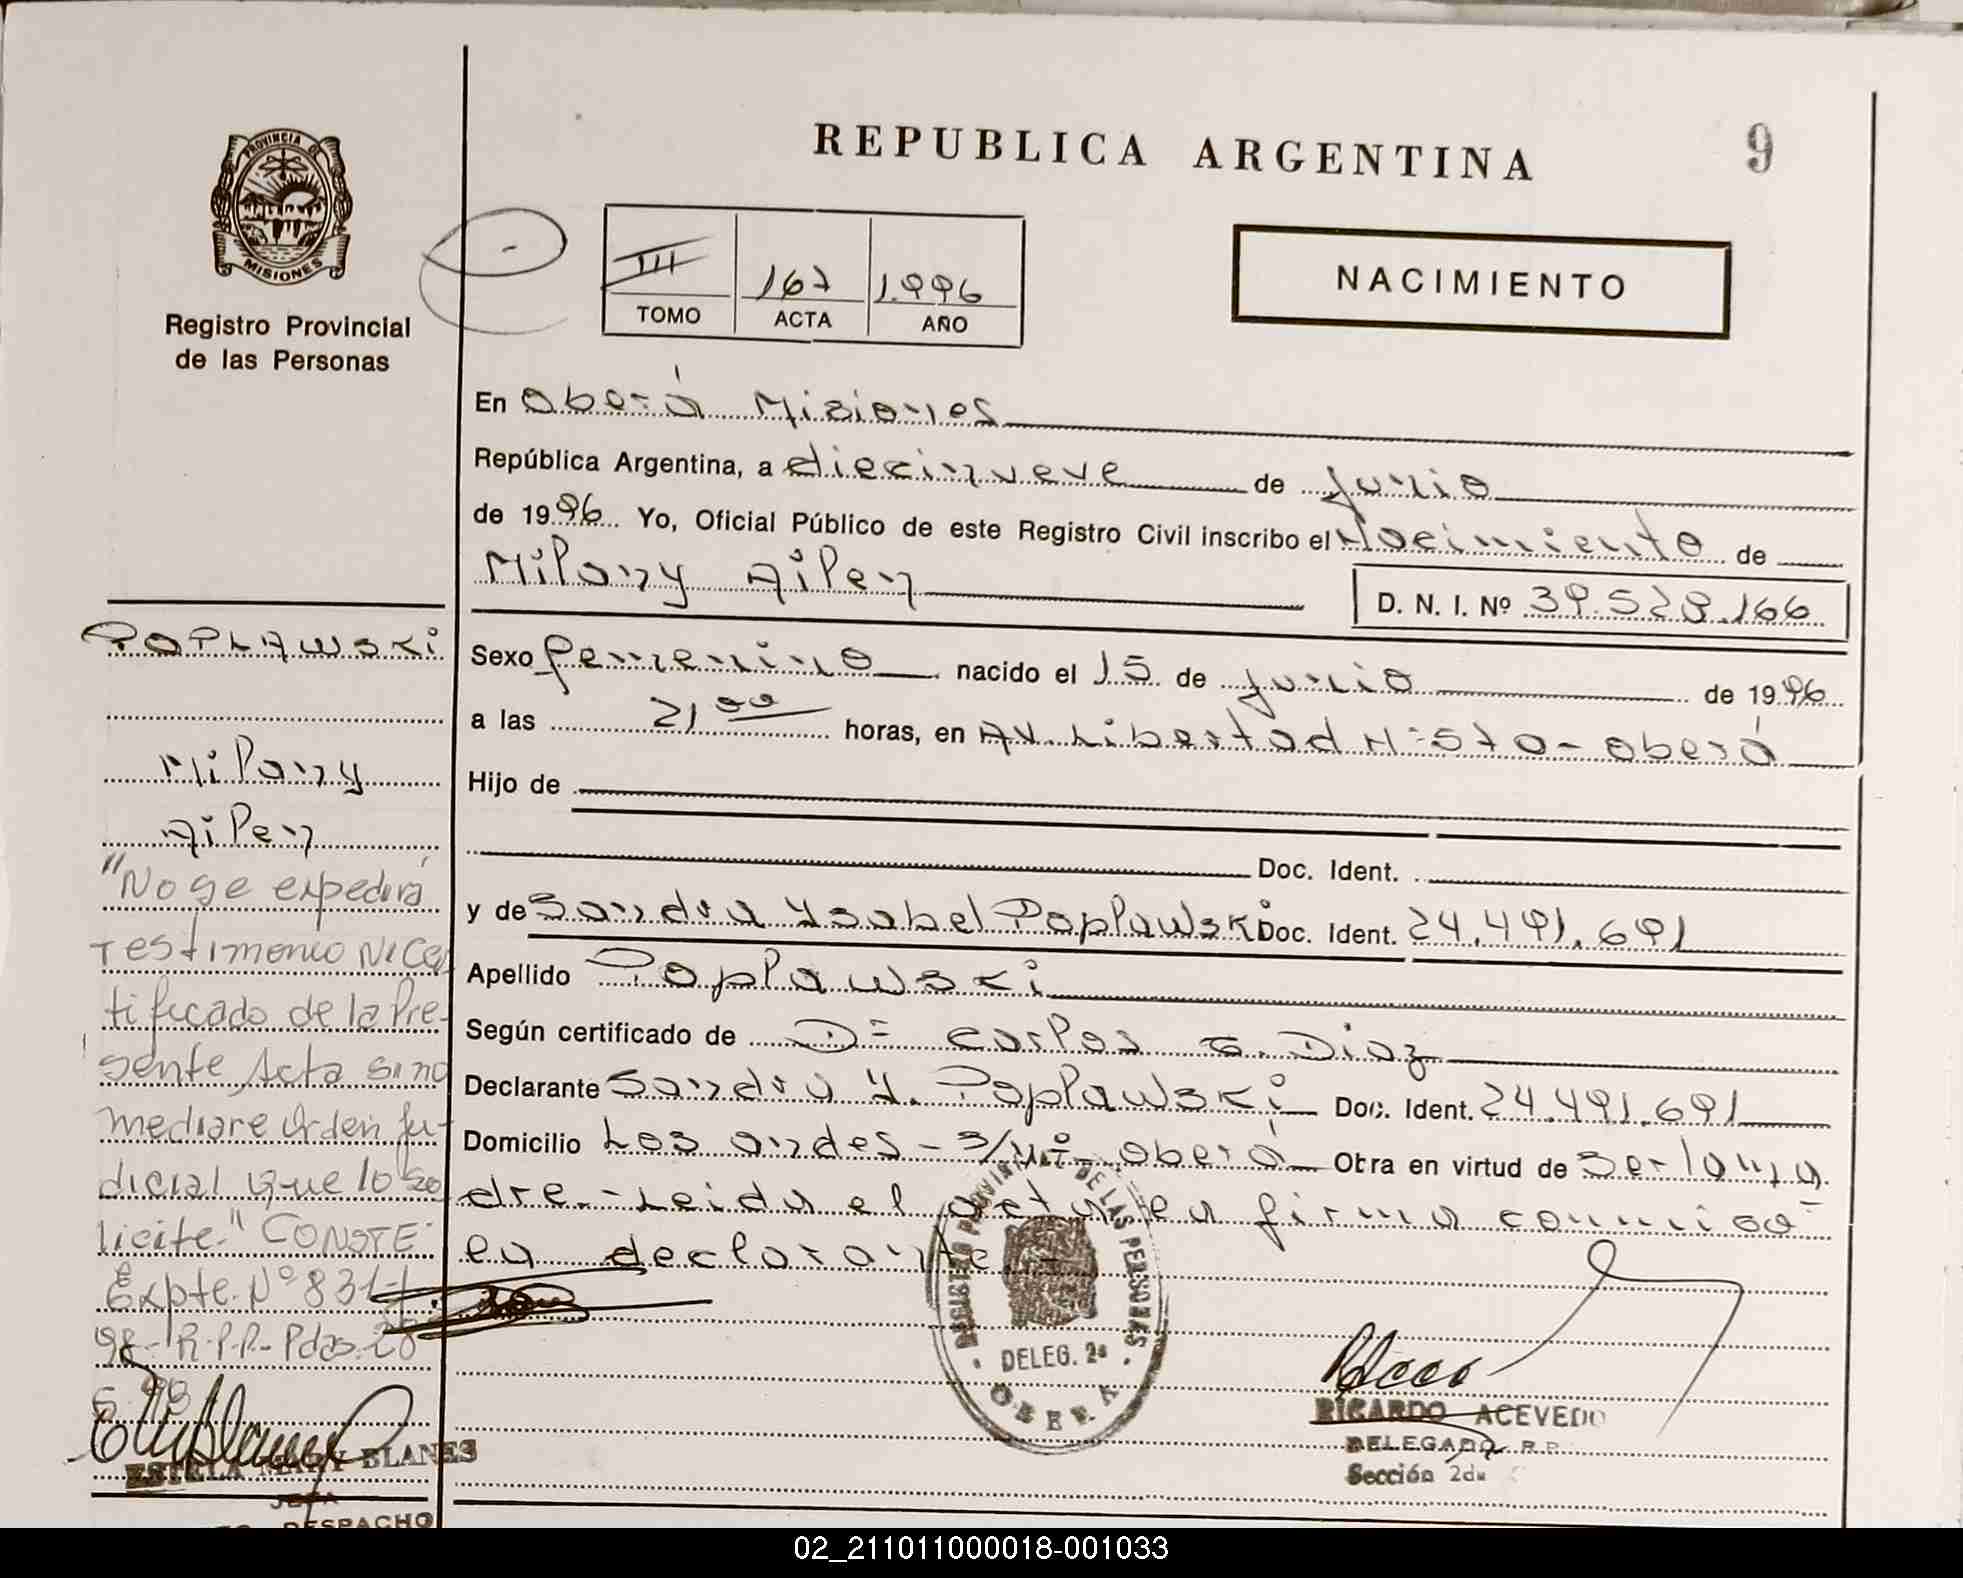 REPUBLICA ARGENTINA
9
PROVINCIA DE
MISIONES
Registro Provincial
de las Personas
III 167 1.996
TOMO ACTA AÑO
NACIMIENTO
En Oberá Misiones
República Argentina, a diecinueve de junio
de 1996 Yo, Oficial Público de este Registro Civil inscribo el Nacimiento de
Milany Ailen
D. N. I. Nº 39.528.166
Sexo femenino nacido el 15 de junio de 1996
a las 21 00 horas, en Av. Libertad Oberá
Hijo de
Doc. Ident.
y de Sandra Ysabel Poplawski Doc. Ident. 24.491.691
Apellido Poplawski
Según certificado de Dº Carlos G. Diaz
Declarante Sandra Y. Poplawski Doc. Ident. 24.491.691
Domicilio Los andes - s/nº Oberá Obra en virtud de Ser la ma
dre.- Leida el acta la firma conmigo
la declarante
POPLAWSKI
Milany
Ailen
"No se expedirá
Testimonio Ni Cer
tificado de la Pre-
sente Acta si no
mediare Orden Ju-
dicial que lo so
licite." CONSTE-
Expte. Nº 831
98- R.P.P. Pdas. 28
5 98
ESTELA MARY BLANES
JEFA
DESPACHO
REGISTRO PROVINCIAL DE LAS PERSONAS
DELEG. 2ª
OBERA
RICARDO ACEVEDO
DELEGADO R.P.
Sección 2da
02_211011000018-001033